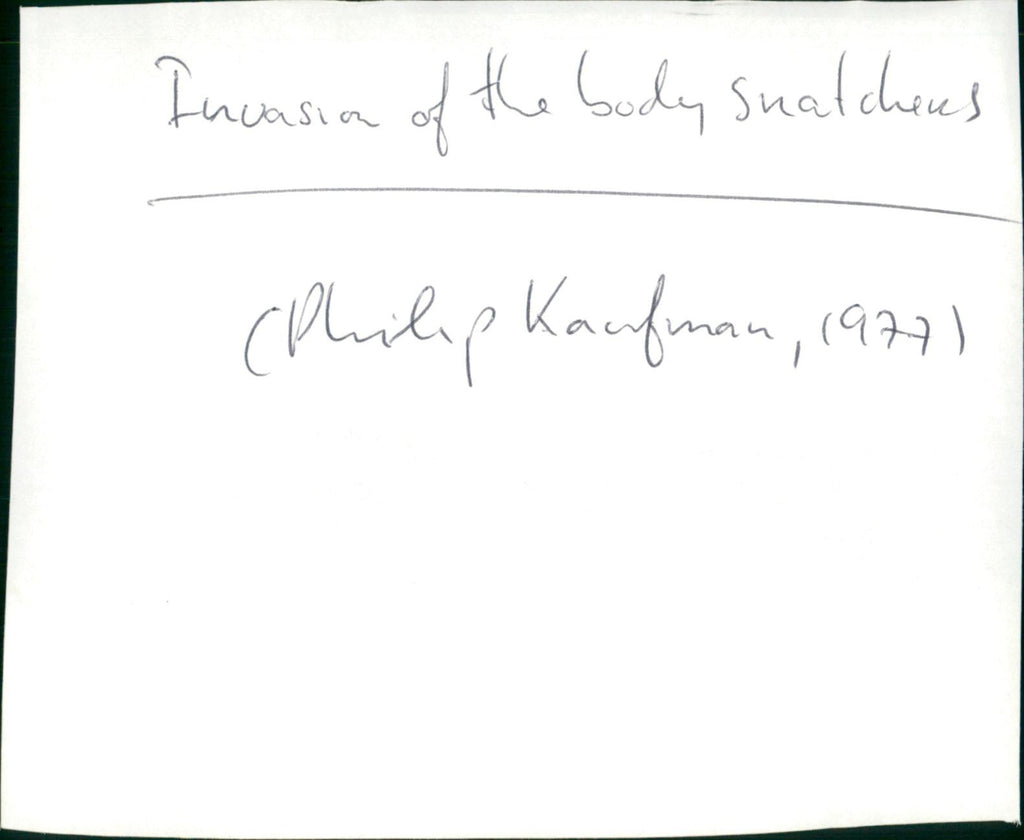 Invasion of the body snatchers
(Philip Kaufman, 1977)